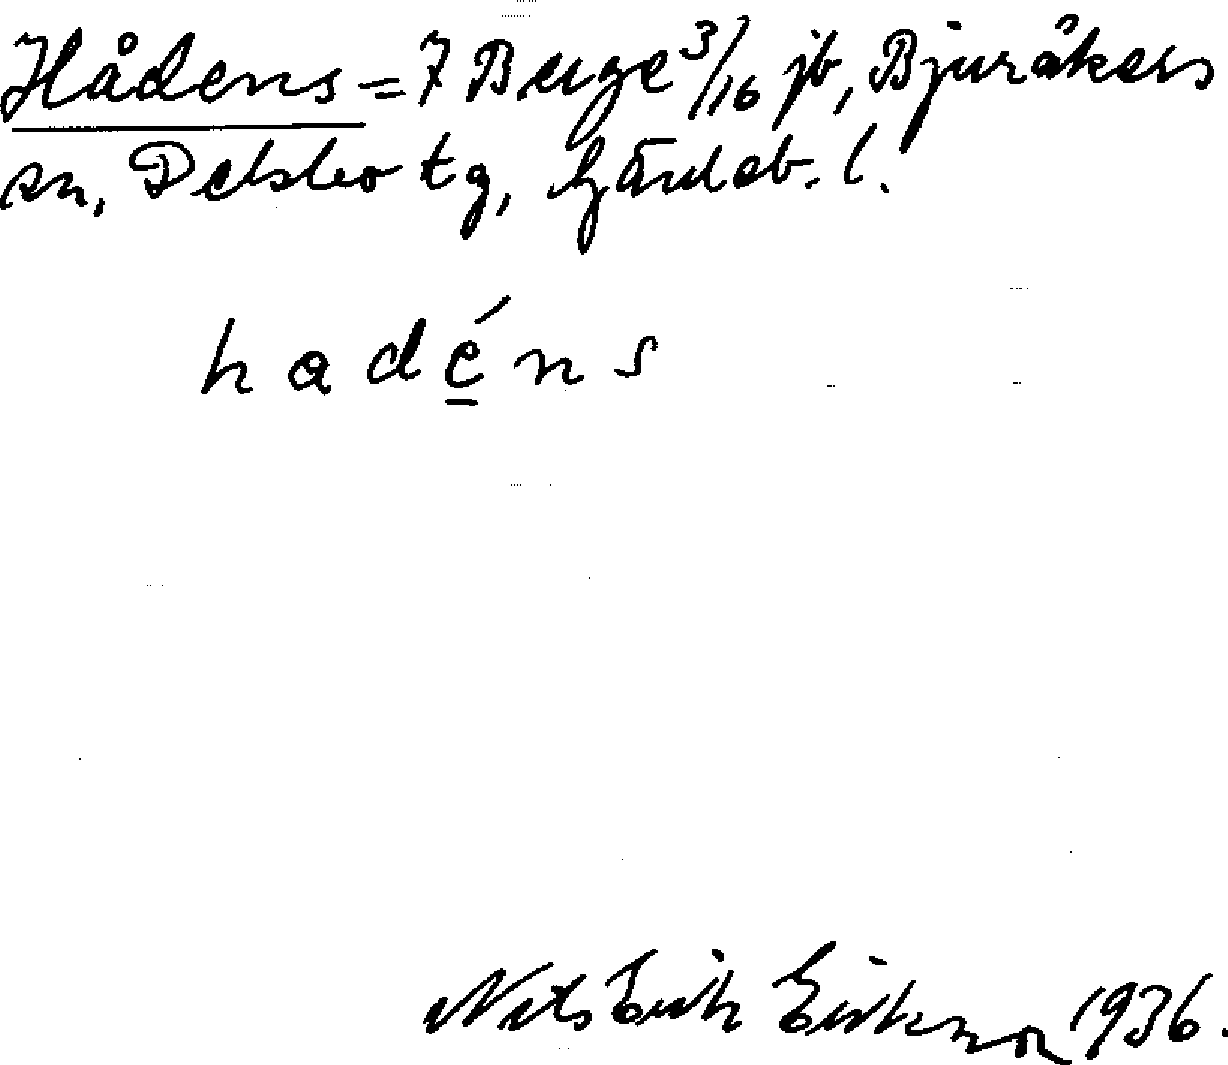 Hådens = 7 Berge 3/16 jb, Bjuråkers
sn, Delsbo tg, Gävleb. l.
hadéns
Nils Erik Eriksson 1936.